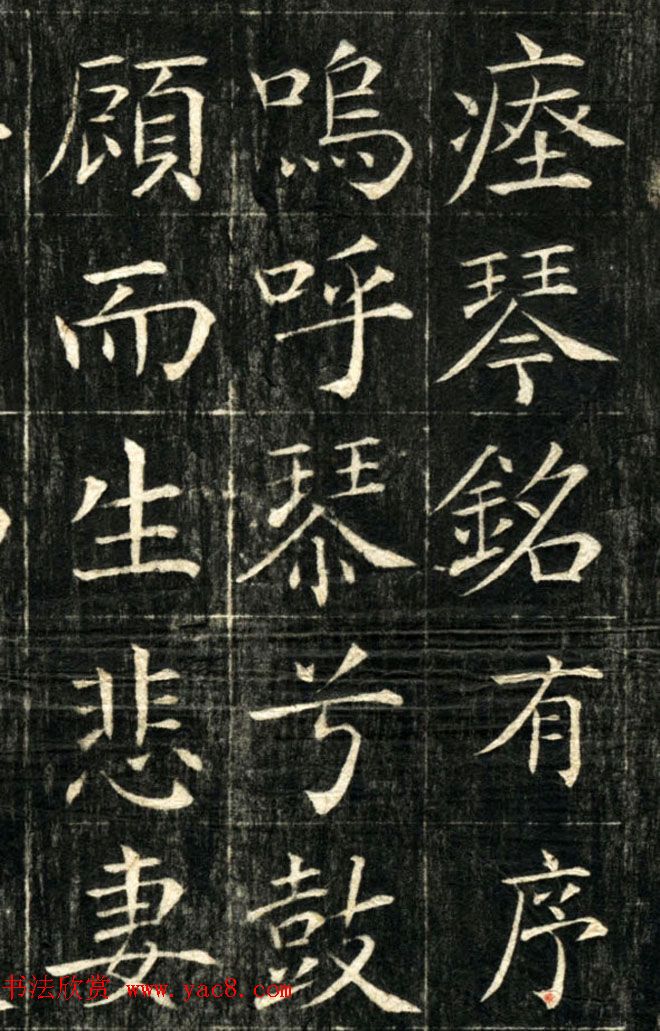 瘞琴銘有序
嗚呼琴兮鼓
顧而生悲妻
书法欣赏 www.yac8.com